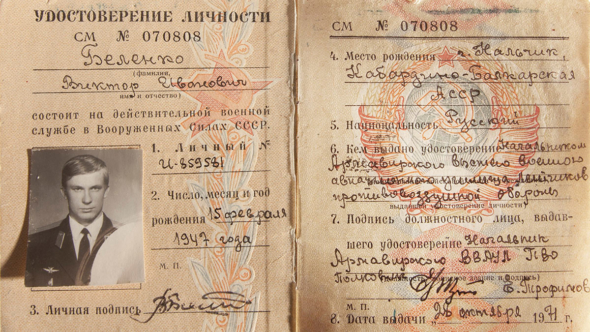 УДОСТОВЕРЕНИЕ ЛИЧНОСТИ
СМ № 070808
Беленко
(фамилия,
Виктор Иванович
имя и отчество)
состоит на действительной военной
службе в Вооруженных Силах СССР.
1. Личный №
И-859531
2. Число, месяц и год
рождения 15 февраля
1947 года
м. п.
3. Личная подпись
СМ № 070808
4. Место рождения г. Нальчик,
Кабардино-Балкарская
АССР
5. Национальность Русский
6. Кем выдано удостоверение Начальником
Армавирского высшего военного
авиационного училища лётчиков
противовоздушной обороны
выдавшей удостоверение личности)
7. Подпись должностного лица, выдав-
шего удостоверение Начальник
Армавирского ВВАУЛ ПВО
Полковник В. Трофимов
звание и подпись)
м. п.
8. Дата выдачи „26 октября 1971 г.